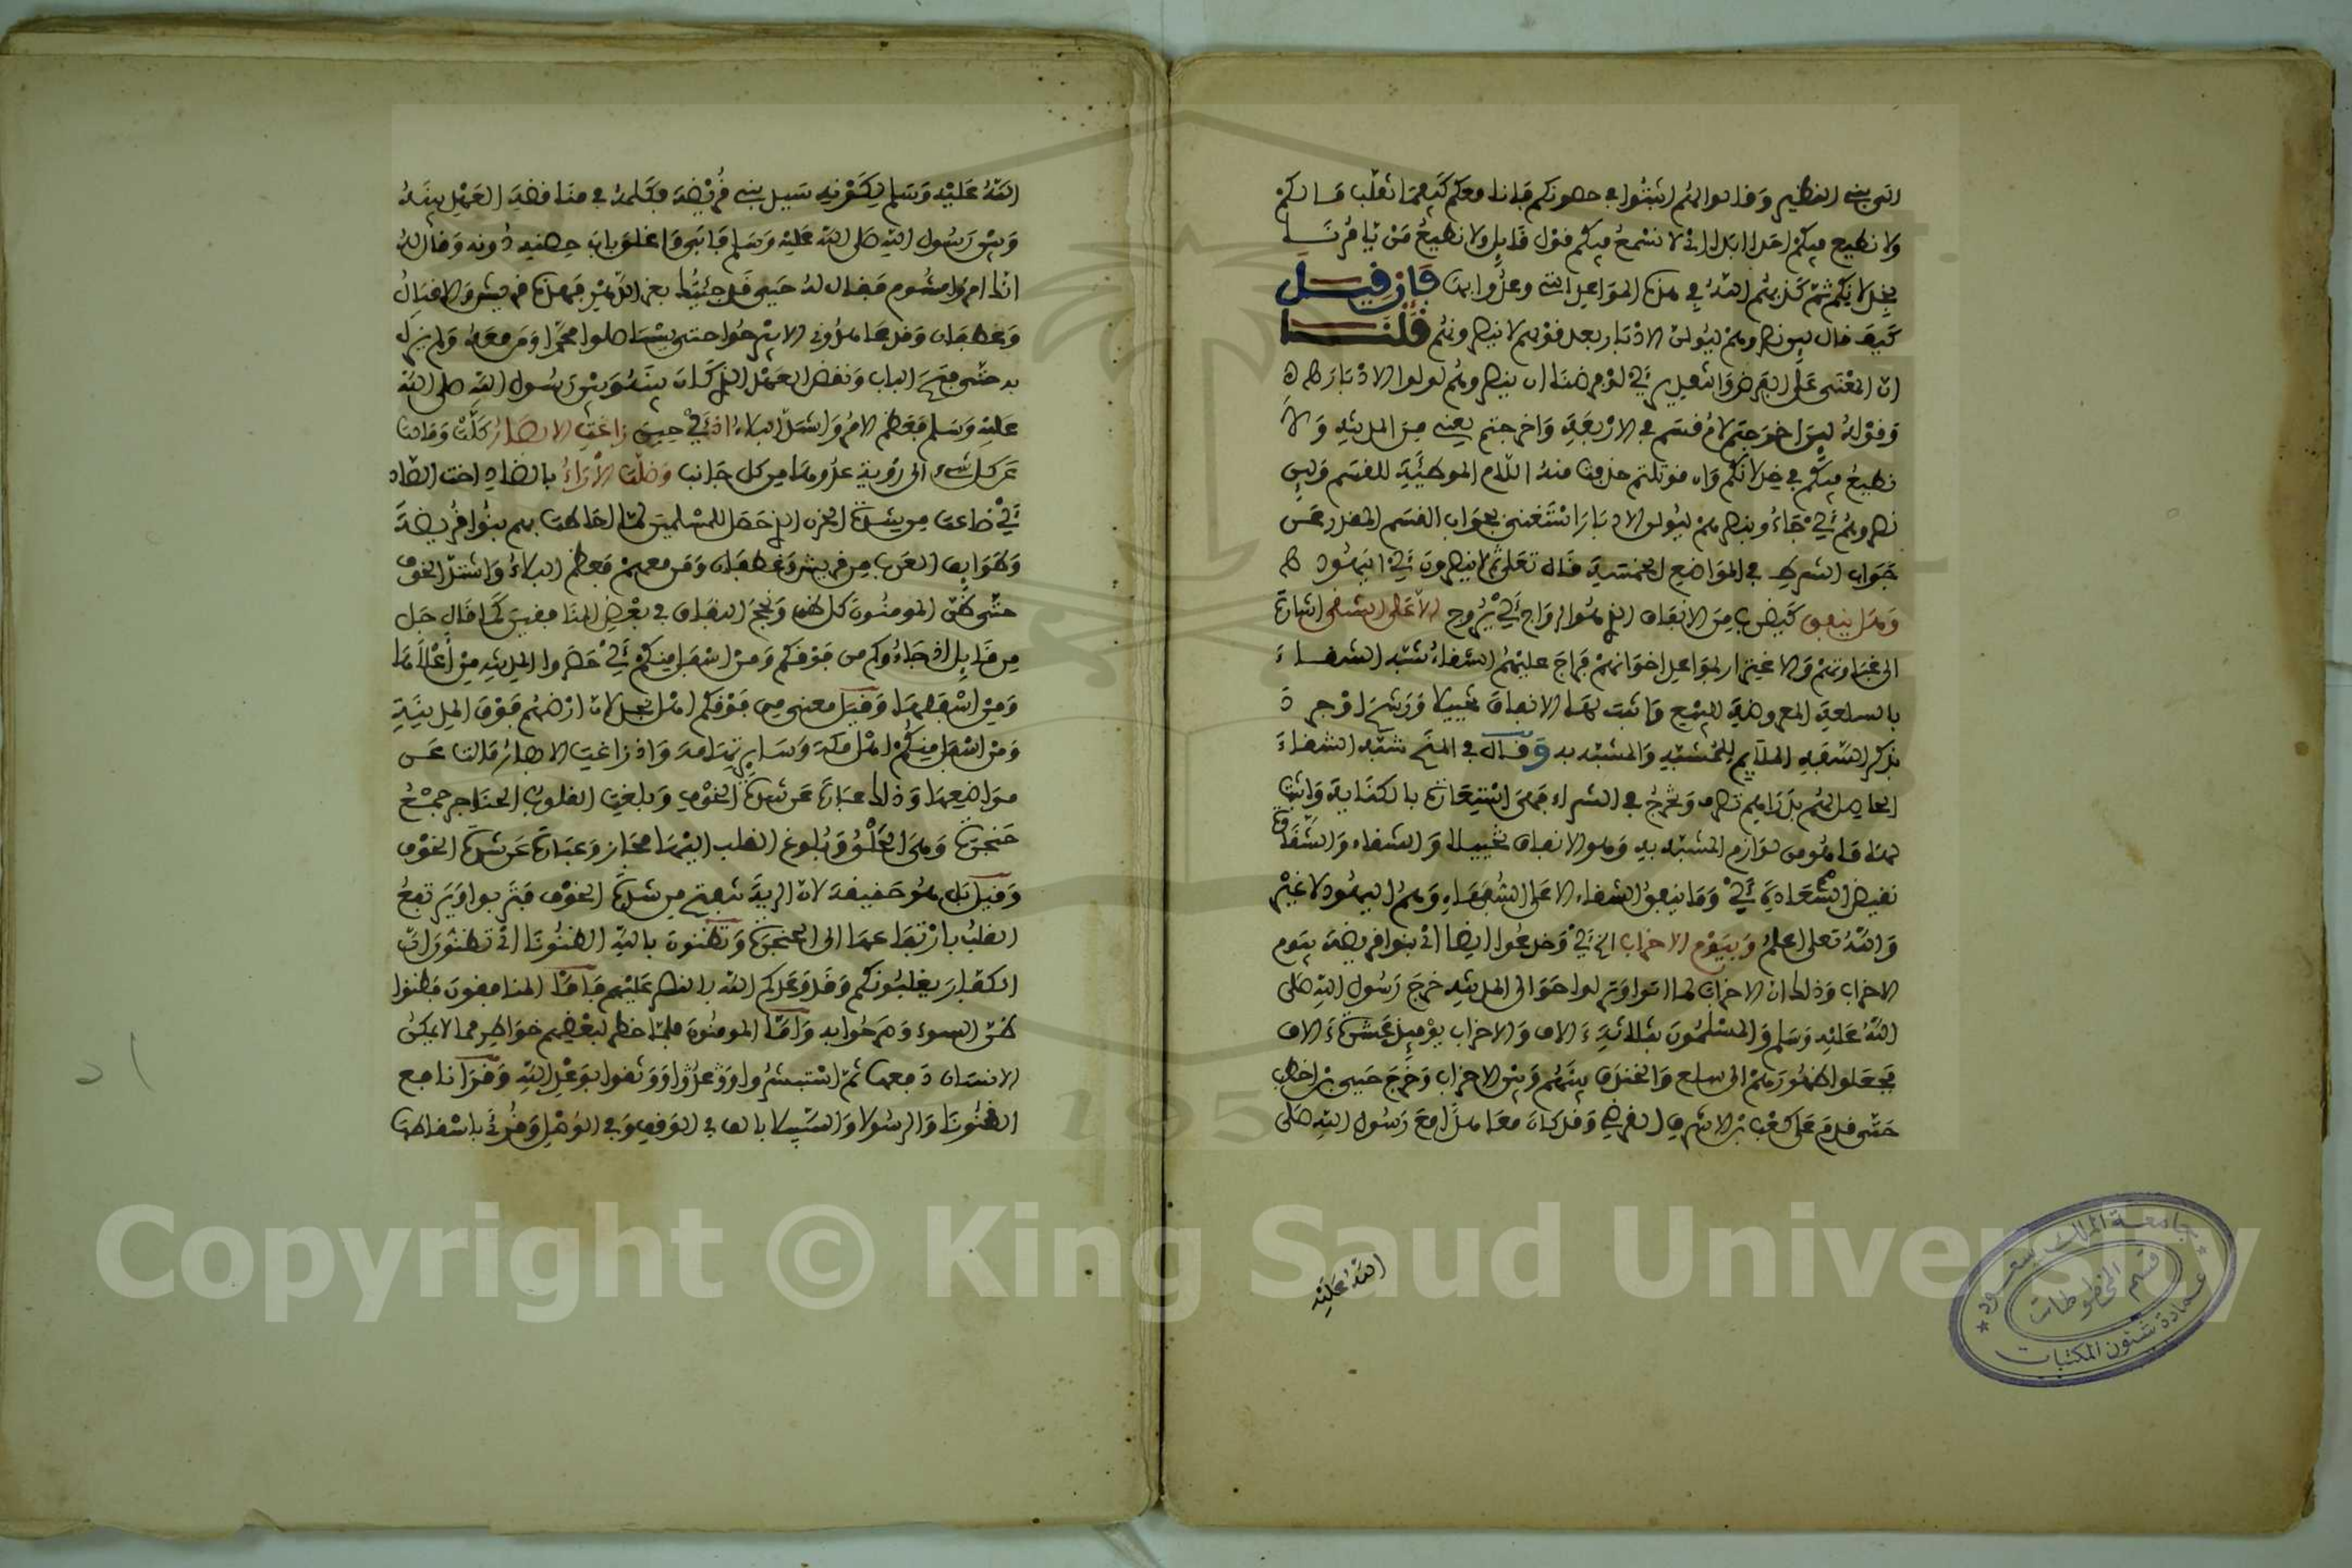 الى بني النظير وقالوا لهم اثبتوا في حصونكم فإنا معكم كيفما تقلب حالكم
ولا نطيع فيكم احدا ابدا اي لا نسمع فيكم قول قايل ولا نطيع من يامرنا
بخذلانكم ثم كذبهم الله في هذه المواعيد التي وعدوا بها فإن قيل
كيف قال لين نصروهم ليولن الادبار بعد قولهم لا ينصرونهم قلنا
ان المعنى على الفرض والتقدير اي لو فرضنا ان ينصروهم لولوا الادبار
وقوله لين اخرجتم لام قسم في الاربعة واخرجتم يعني من المدينة ولا
نطيع فيكم في خذلانكم وان قوتلتم حذفت منه اللام الموطئة للقسم ولين
نصروهم اي جاءوا ينصرهم ليولن الادبار استغنى بجواب القسم المقدر عن
جواب الشرط في المواضع الخمسة قاله تعلى ثم لا ينصرون اي اليهود
وهل ينفق كيضرب من الانفاق الذي هو الرواج اي يروج الا على الشقي اشارة
الى غباوتهم والاغترار بمواعد اخوانهم فراج عليهم الشقاء شبه الشقاء
بالسلعة المعروضة للبيع واثبت لها الانفاق تخييلا ورشح
بذكر السفه الملايم للمشبه والمشبه به وقال في المنح شبه الشقاء
الحاصل لهم بدراهم تصرف وتخرج في الشراء فهي استعارة بالكناية واثبت
لها ما هو من لوازم المشبه به وهو الانفاق تخييلا والشقاء والشقاوة
نقيض السعادة اي وما ينفق الشقاء الا على السفهاء وهم اليهود لا غير
والله تعلى اعلم وبيوم الاحزاب الخ اي وخدعوا ايضا اي بنوا قريضة يوم
الاحزاب وذلك ان الاحزاب لما اتوا ونزلوا حوالى المدينة خرج رسول الله صلى
الله عليه وسلم والمسلمون بثلاثة ءالاف والاحزاب يوميذ عشرة ءالاف
فجعلوا ظهورهم الى سلع والخندق بينهم وبين الاحزاب وخرج حيي بن اخطب
حتى قدم على كعب بن الاشرف القرضي وقد كان معاهدا مع رسول الله صلى
الله عليه
الله عليه وسلم ليكفرنه سيل بني قريضة وكلمه في مناقضة العهد بينه
وبين رسول الله صلى الله عليه وسلم فابى واغلق باب حصنه دونه وقال له
انك امرؤ مشوم فقال له حيي قد جئتك بعز الدهر فهذه قريش والاقيال
وغطفان وقد عاهدوني الا يبرحوا حتى يستاصلوا محمدا ومن معه ولم يزل
به حتى فتح الباب ونقض العهد الذي كان بينه وبين رسول الله صلى الله
عليه وسلم فعظم الامر واشتد البلاء اذ اي حين زاغت الابصار كلت ومالت
عن كل شيء الى رؤية عدوها من كل جانب وضلت الاراء بالضاد اخت الصاد
اي ضاعت من شدة الحزن الذي حصل للمسلمين لما احاطت بهم بنوا قريضة
وطوايف العرب من قريش وغطفان ومن معهم فعظم البلاء واشتد الخوف
حتى ظن المومنون كل ظن ونجم النفاق في بعض المنافقين كما قال جل
من قايل اذ جاءوكم من فوقكم ومن اسفل منكم اي حضروا المدينة من اعلاها
ومن اسفلها وقيل معنى من فوقكم اهل نجد لان ارضهم فوق المدينة
ومن اسفل منكم اهل مكة وساير تهامة واذ زاغت الابصار مالت عن
مواضعها وذلك عبارة عن شدة الخوف وبلغت القلوب الحناجر جمع
حنجرة وهي الحلق وبلوغ القلب اليها مجاز وعبارة عن شدة الخوف
وقيل بل هو حقيقة لان الرية تنفتح من شدة الخوف فتربوا ويرتفع
القلب بارتفاعها الى الحنجرة وتظنون بالله الظنونا اي تظنون ان
الكفار يغلبونكم وقد وعدكم الله بالنصر عليهم فاما المنافقون فظنوا
ظن السوء وصرحوا به واما المومنون فلما خطر لبعضهم خواطر مما لا يمكن
الانسان دفعها ثم استبشروا ووعدوا ووثقوا بوعد الله وقرا نافع
الظنونا والرسولا والسبيلا بالف في الوقف وفي الوصل وقرئ باسقاطها
جامعة الملك سعود
قسم المخطوطات
عمادة شئون المكتبات
Copyright © King Saud University
195